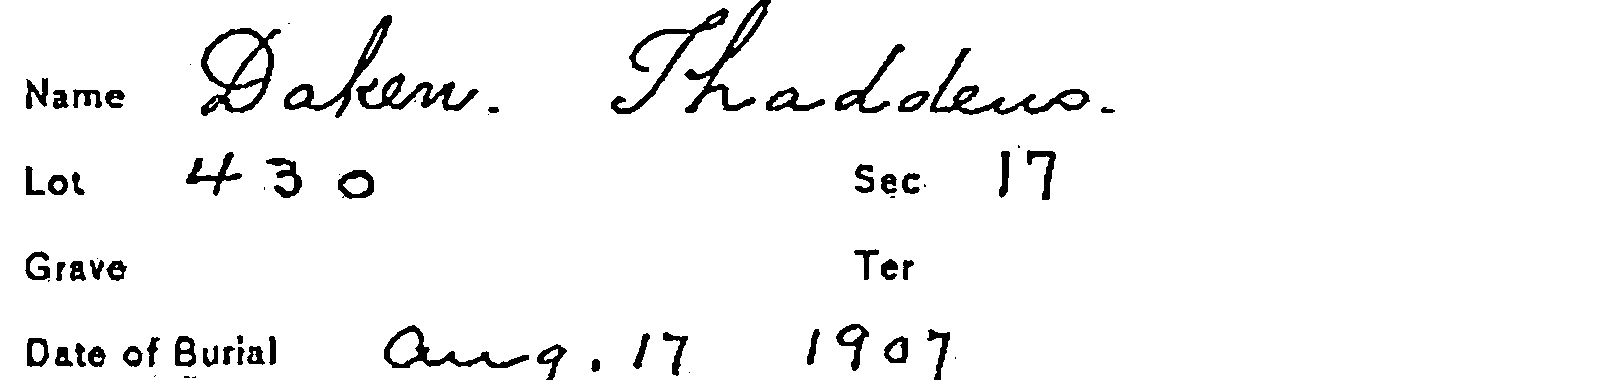 Name Daken. Thaddeus.
Lot 430 Sec 17
Grave Ter
Date of Burial Aug. 17 1907